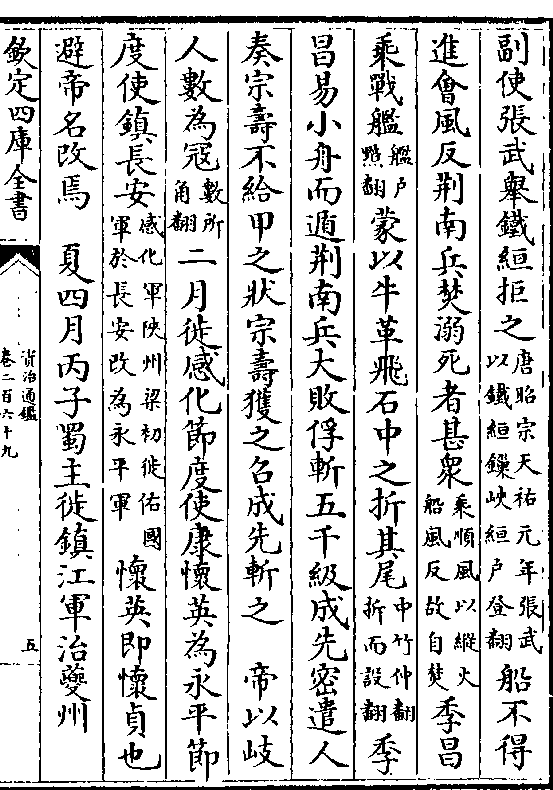 副使張武舉鐵絙拒之唐昭宗天祐元年張武以鐵絙鏁峽絙戶登翻船不得
進會風反荆南兵焚溺死者甚衆乘順風以縱火船風反故自焚季昌
乘戰艦艦戶黯翻蒙以牛革飛石中之折其尾中竹仲翻折而設翻季
昌易小舟而遁荆南兵大敗俘斬五千級成先密遣人
奏宗壽不給甲之狀宗壽獲之召成先斬之　帝以岐
人數為冦數所角翻二月徙感化節度使康懷英為永平節
度使鎮長安感化軍陜州梁初徙佑國軍於長安改為永平軍懷英即懷貞也
避帝名改焉　夏四月丙子蜀主徙鎮江軍治夔州
欽定四庫全書
資治通鑑
卷二百六十九
五